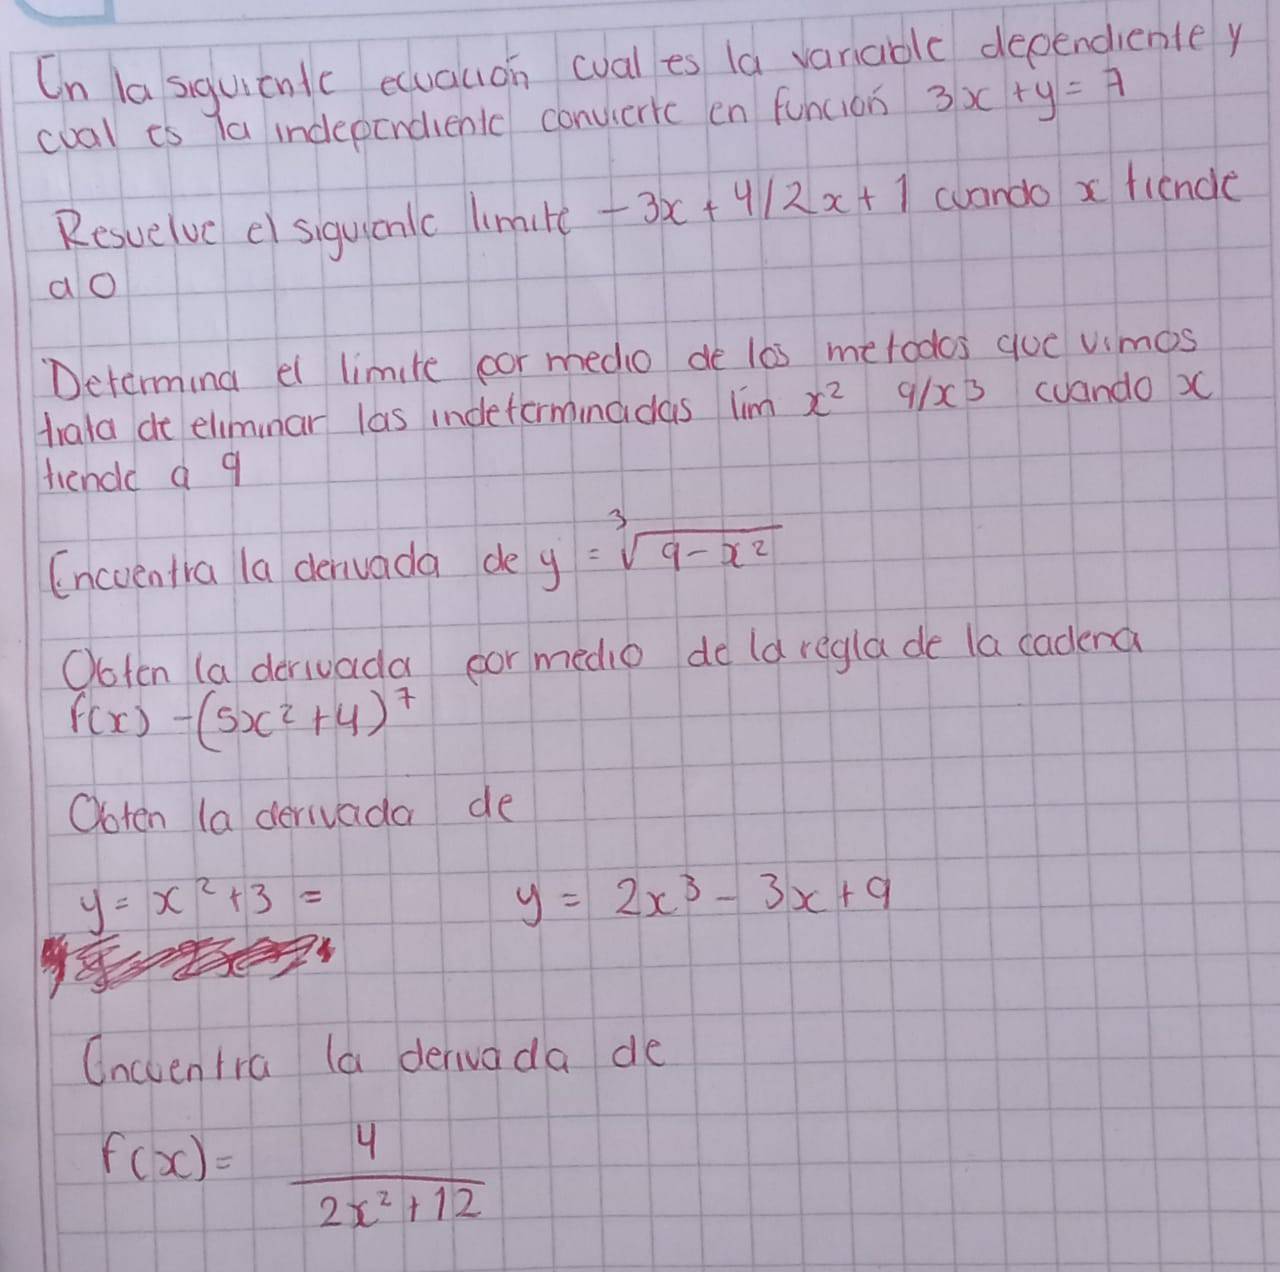 En la siguiente ecuación cual es la variable dependiente y
cual es la independiente convierte en función 3x + y = 7
Resuelve el siguiente limite - 3x + 4/2x + 1 cuando x tiende
a 0
Determina el limite por medio de los metodos que vimos
trata de eliminar las indeterminadas lim x² 9/x3 cuando x
tiende a 9
Encuentra la derivada de y = ³√9 - x²
Obten la derivada por medio de la regla de la cadena
f(x) - (5x² + 4)⁷
Obten la derivada de
y = x² + 3 = y = 2x³ - 3x + 9
Encuentra la derivada de
f(x) = 4
2x² + 12